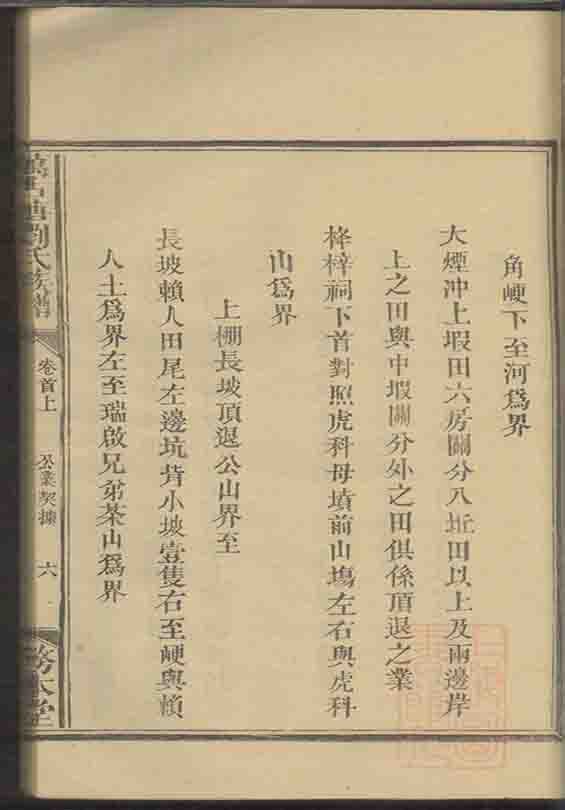 角㘭下至河爲界
大煙冲上塅田六房鬮分八坵田以上及兩邊岸
上之田與中塅鬮分外之田俱係頂退之業
梓祠下首對照虎科母墳前山塲左右與虎科
山爲界
上棚長坡頂退公山界至
長坡賴人田尾左邊坑背小坡壹隻右至㘭與賴
人土爲界左至瑞啟兄弟茶山爲界
劉氏族譜
卷首上
公業契據
六
務本堂